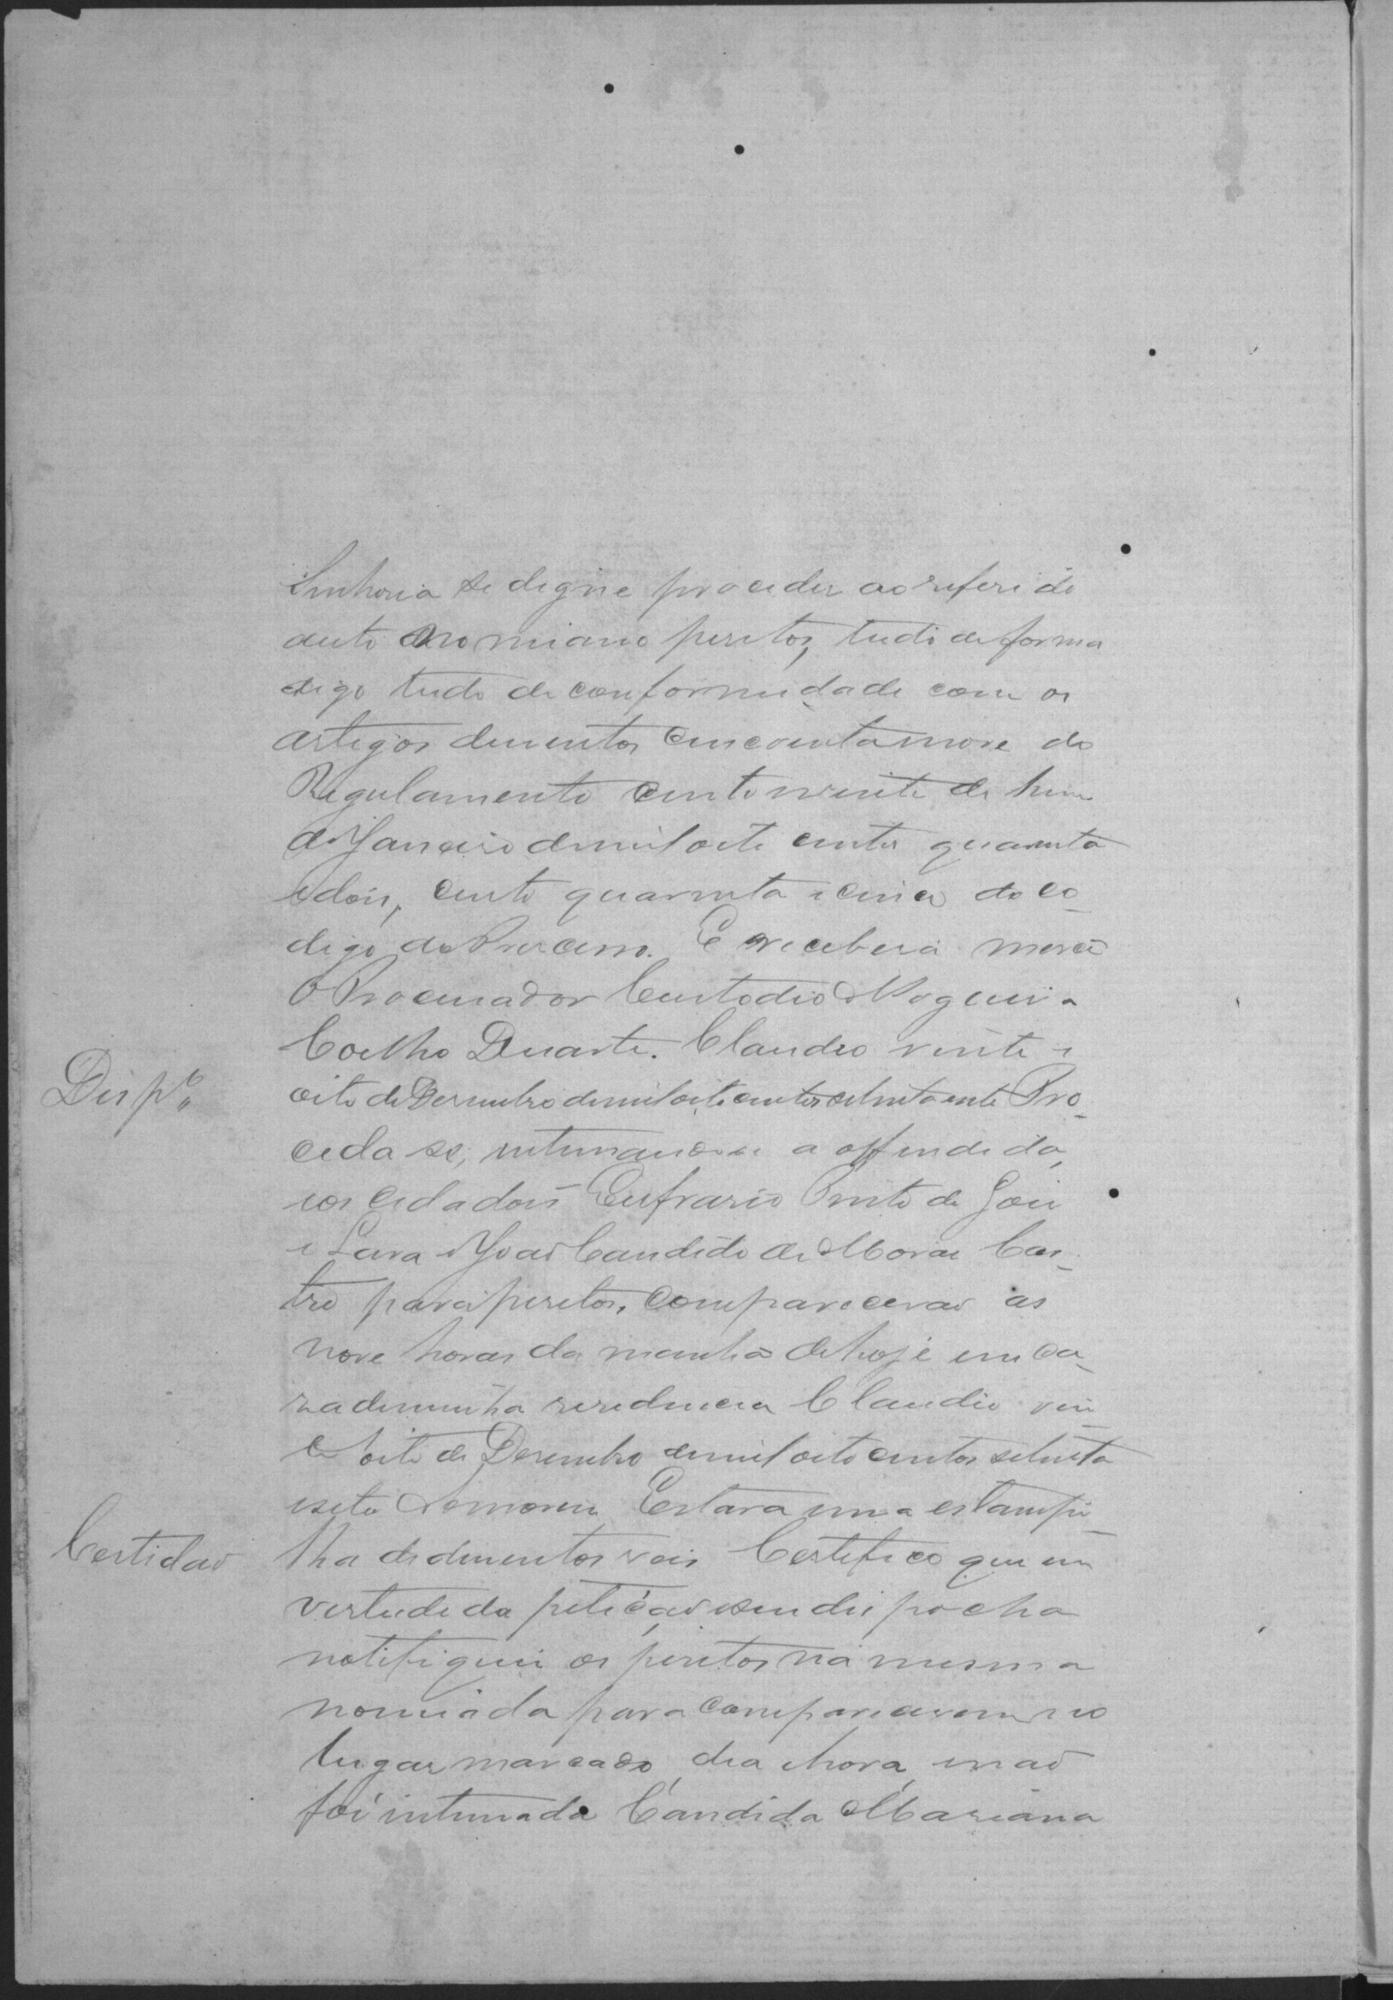 Senhoria se digne proceder ao referido
auto nomiano peritos, tudo de forma
digo tudo de conformidade com os
artigos dusentos cincoenta nove do
Regulamento cento vinte de hum
de Janeiro de mil oito centos quarenta
e dois, cento quarenta e cinco do co-
digo do Processo. E receberá mercê
O Procurador Custodio Nogueira
Coelho Duarte. Claudio vinte e
Desp.º
oito de Dezembro de mil oito centos setenta e sete Pro-
ceda se, intimando se a offendida,
e os cidadõis Eufrazio Pinto de Goes
e Lara e Joaõ Candido de Moraes Cas-
tro para peritos, compareceraõ as
nove horas da manhã de hoje em ca-
za de minha residencia Claudio vin-
te oito de Desembro de mil oito centos setenta
e sete Estava uma estampi-
Certidaõ
lha de dusentos reis Certifico que em
vertude da petiçaõ e seu despacho
notifiquei os peritos na mesma
nomiada para comparecerem no
lugar marcado, dia e hora, e naõ
foi intimada Candida Mariana